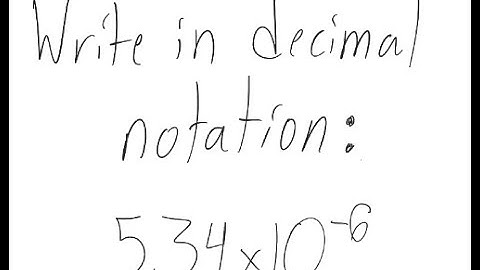 Write in decimal
notation:
5.34×10⁻⁶